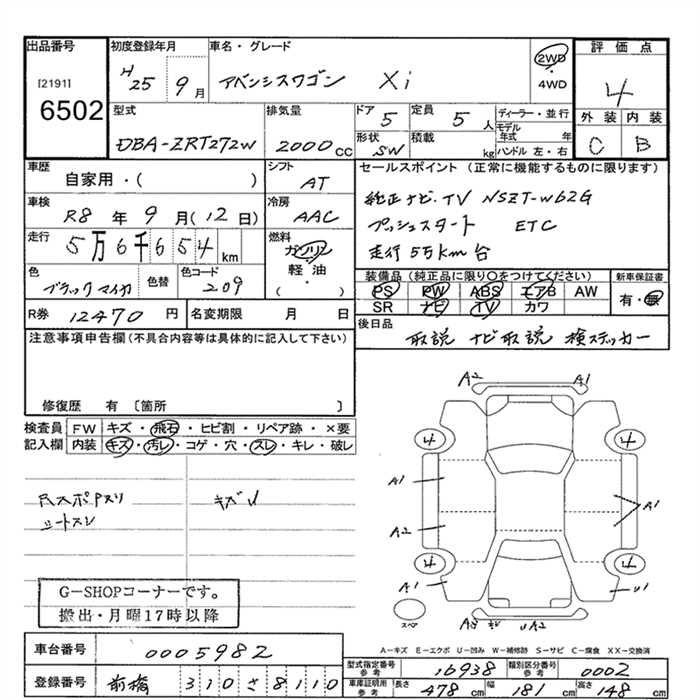 出品番号 初度登録年月 車名・グレード 2WD 4WD 評価点
[2191] 6502 H25 9月 アベンシスワゴン Xi 4
型式 排気量 ドア 5 定員 5人 ディーラー・並行 外装 内装
DBA-ZRT272W 2000cc 形状 SW 積載 kg モデル年式 年 ハンドル 左・右 C B
車歴 シフト セールスポイント (正常に機能するものに限ります)
自家用・( ) AT
車検 冷房 純正ナビ.TV NSZT-W62G
R8年 9月(12日) AAC プッシュスタート ETC
走行 5万6千654km 燃料 ガソリン 走行5万km台
軽・油 ( )
色 色替 色コード 装備品 (純正品に限り〇をつけてください) 新車保証書
ブラックマイカ 209 PS PW ABS エアB AW 有・無
SR ナビ TV カワ
R券 12470円 名変期限 月 日 後日品 取説 ナビ取説 検ステッカー
注意事項申告欄 (不具合内容等は具体的に記入して下さい)
修復歴 有 〔箇所 〕
検査員 FW キズ・飛石・ヒビ割・リペア跡・×要
記入欄 内装 キズ・汚レ・コゲ・穴・スレ・キレ・破レ
シートスレ
G-SHOPコーナーです。
搬出・月曜17時以降
A2 A1
4 4
A1 A1
A2
4 4
A1 U1
スペア UA2
A-キズ E-エクボ U-凹み W-補修跡 S-サビ C-腐食 XX-交換済
車台番号 0005982
型式指定番号 参考 16938 類別区分番号 参考 0002
登録番号 前橋 310さ8110
車庫証明用 参考 長さ 478cm 幅 181cm 高さ 148cm